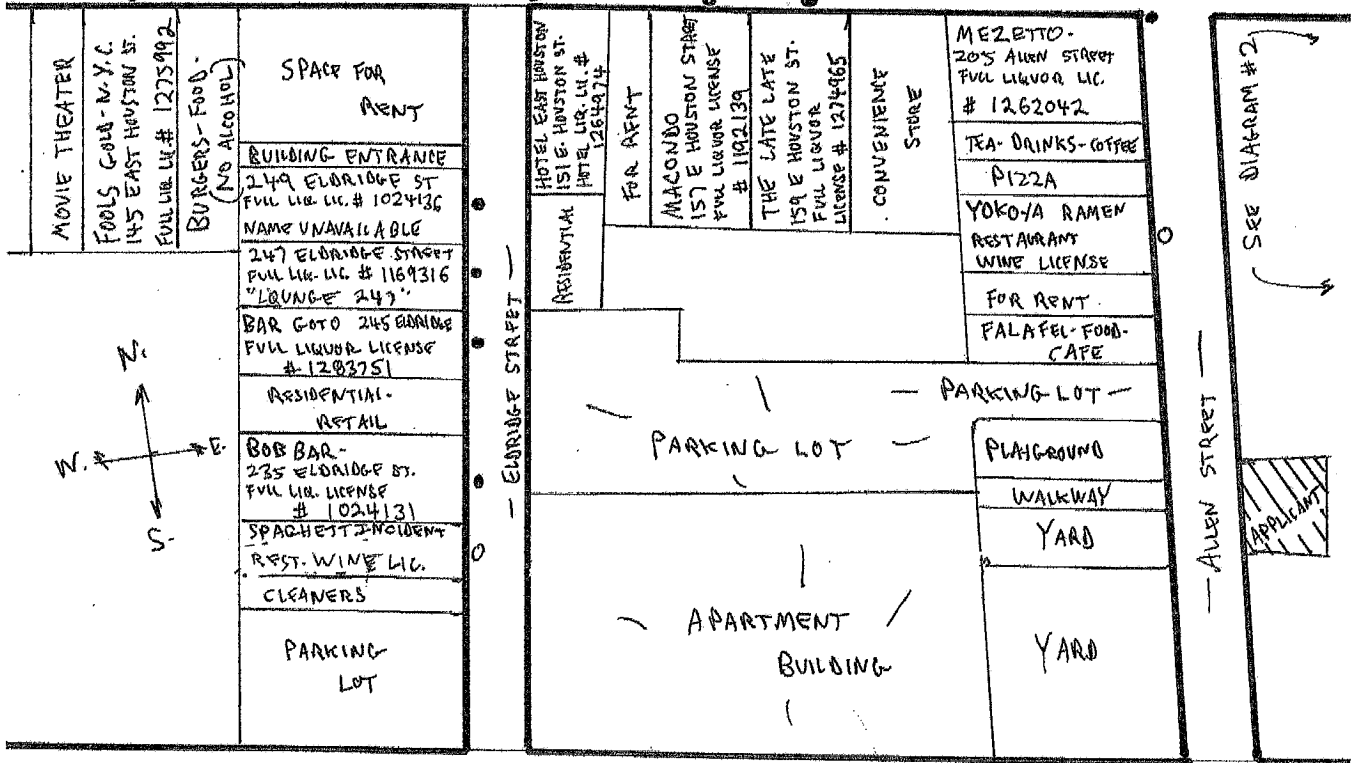 MOVIE THEATER
FOOLS GOLD - N.Y.C.
145 EAST HOUSTON ST.
FULL LIQ. LIC. # 1275992
BURGERS - FOOD -
(NO ALCOHOL)
SPACE FOR
RENT
BUILDING ENTRANCE
249 ELDRIDGE ST
FULL LIQ. LIC. # 1024136
NAME UNAVAILABLE
247 ELDRIDGE STREET
FULL LIQ. LIC. # 1169316
"LOUNGE 247"
BAR GOTO 245 ELDRIDGE
FULL LIQUOR LICENSE
# 1283751
RESIDENTIAL -
RETAIL
BOB BAR -
235 ELDRIDGE ST.
FULL LIQ. LICENSE
# 1024131
SPAGHETT INCIDENT
REST. WINE LIC.
CLEANERS
PARKING
LOT
N.
W.
E.
S.
— ELDRIDGE STREET —
HOTEL EAST HOUSTON
151 E. HOUSTON ST.
HOTEL LIQ. LIC. #
1264974
RESIDENTIAL
FOR RENT
MACONDO
157 E HOUSTON STREET
FULL LIQUOR LICENSE
# 1192139
THE LATE LATE
159 E HOUSTON ST.
FULL LIQUOR
LICENSE # 1274965
CONVENIENCE
STORE
MEZETTO -
205 ALLEN STREET
FULL LIQUOR LIC.
# 1262042
TEA - DRINKS - COFFEE
PIZZA
YOKOYA RAMEN
RESTAURANT
WINE LICENSE
FOR RENT
FALAFEL - FOOD -
CAFE
— PARKING LOT —
PARKING LOT
PLAYGROUND
WALKWAY
YARD
APARTMENT
BUILDING
YARD
— ALLEN STREET —
SEE DIAGRAM #2
APPLICANT